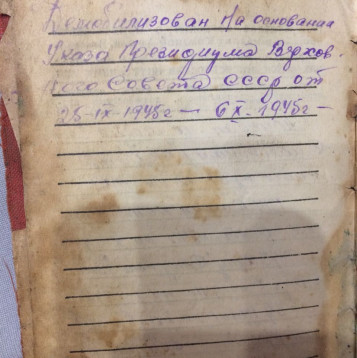 Демобилизован на основании
Указа Президиума Верхов
ного Совета СССР от
25-IX-1945г — 6 X. 1945г —